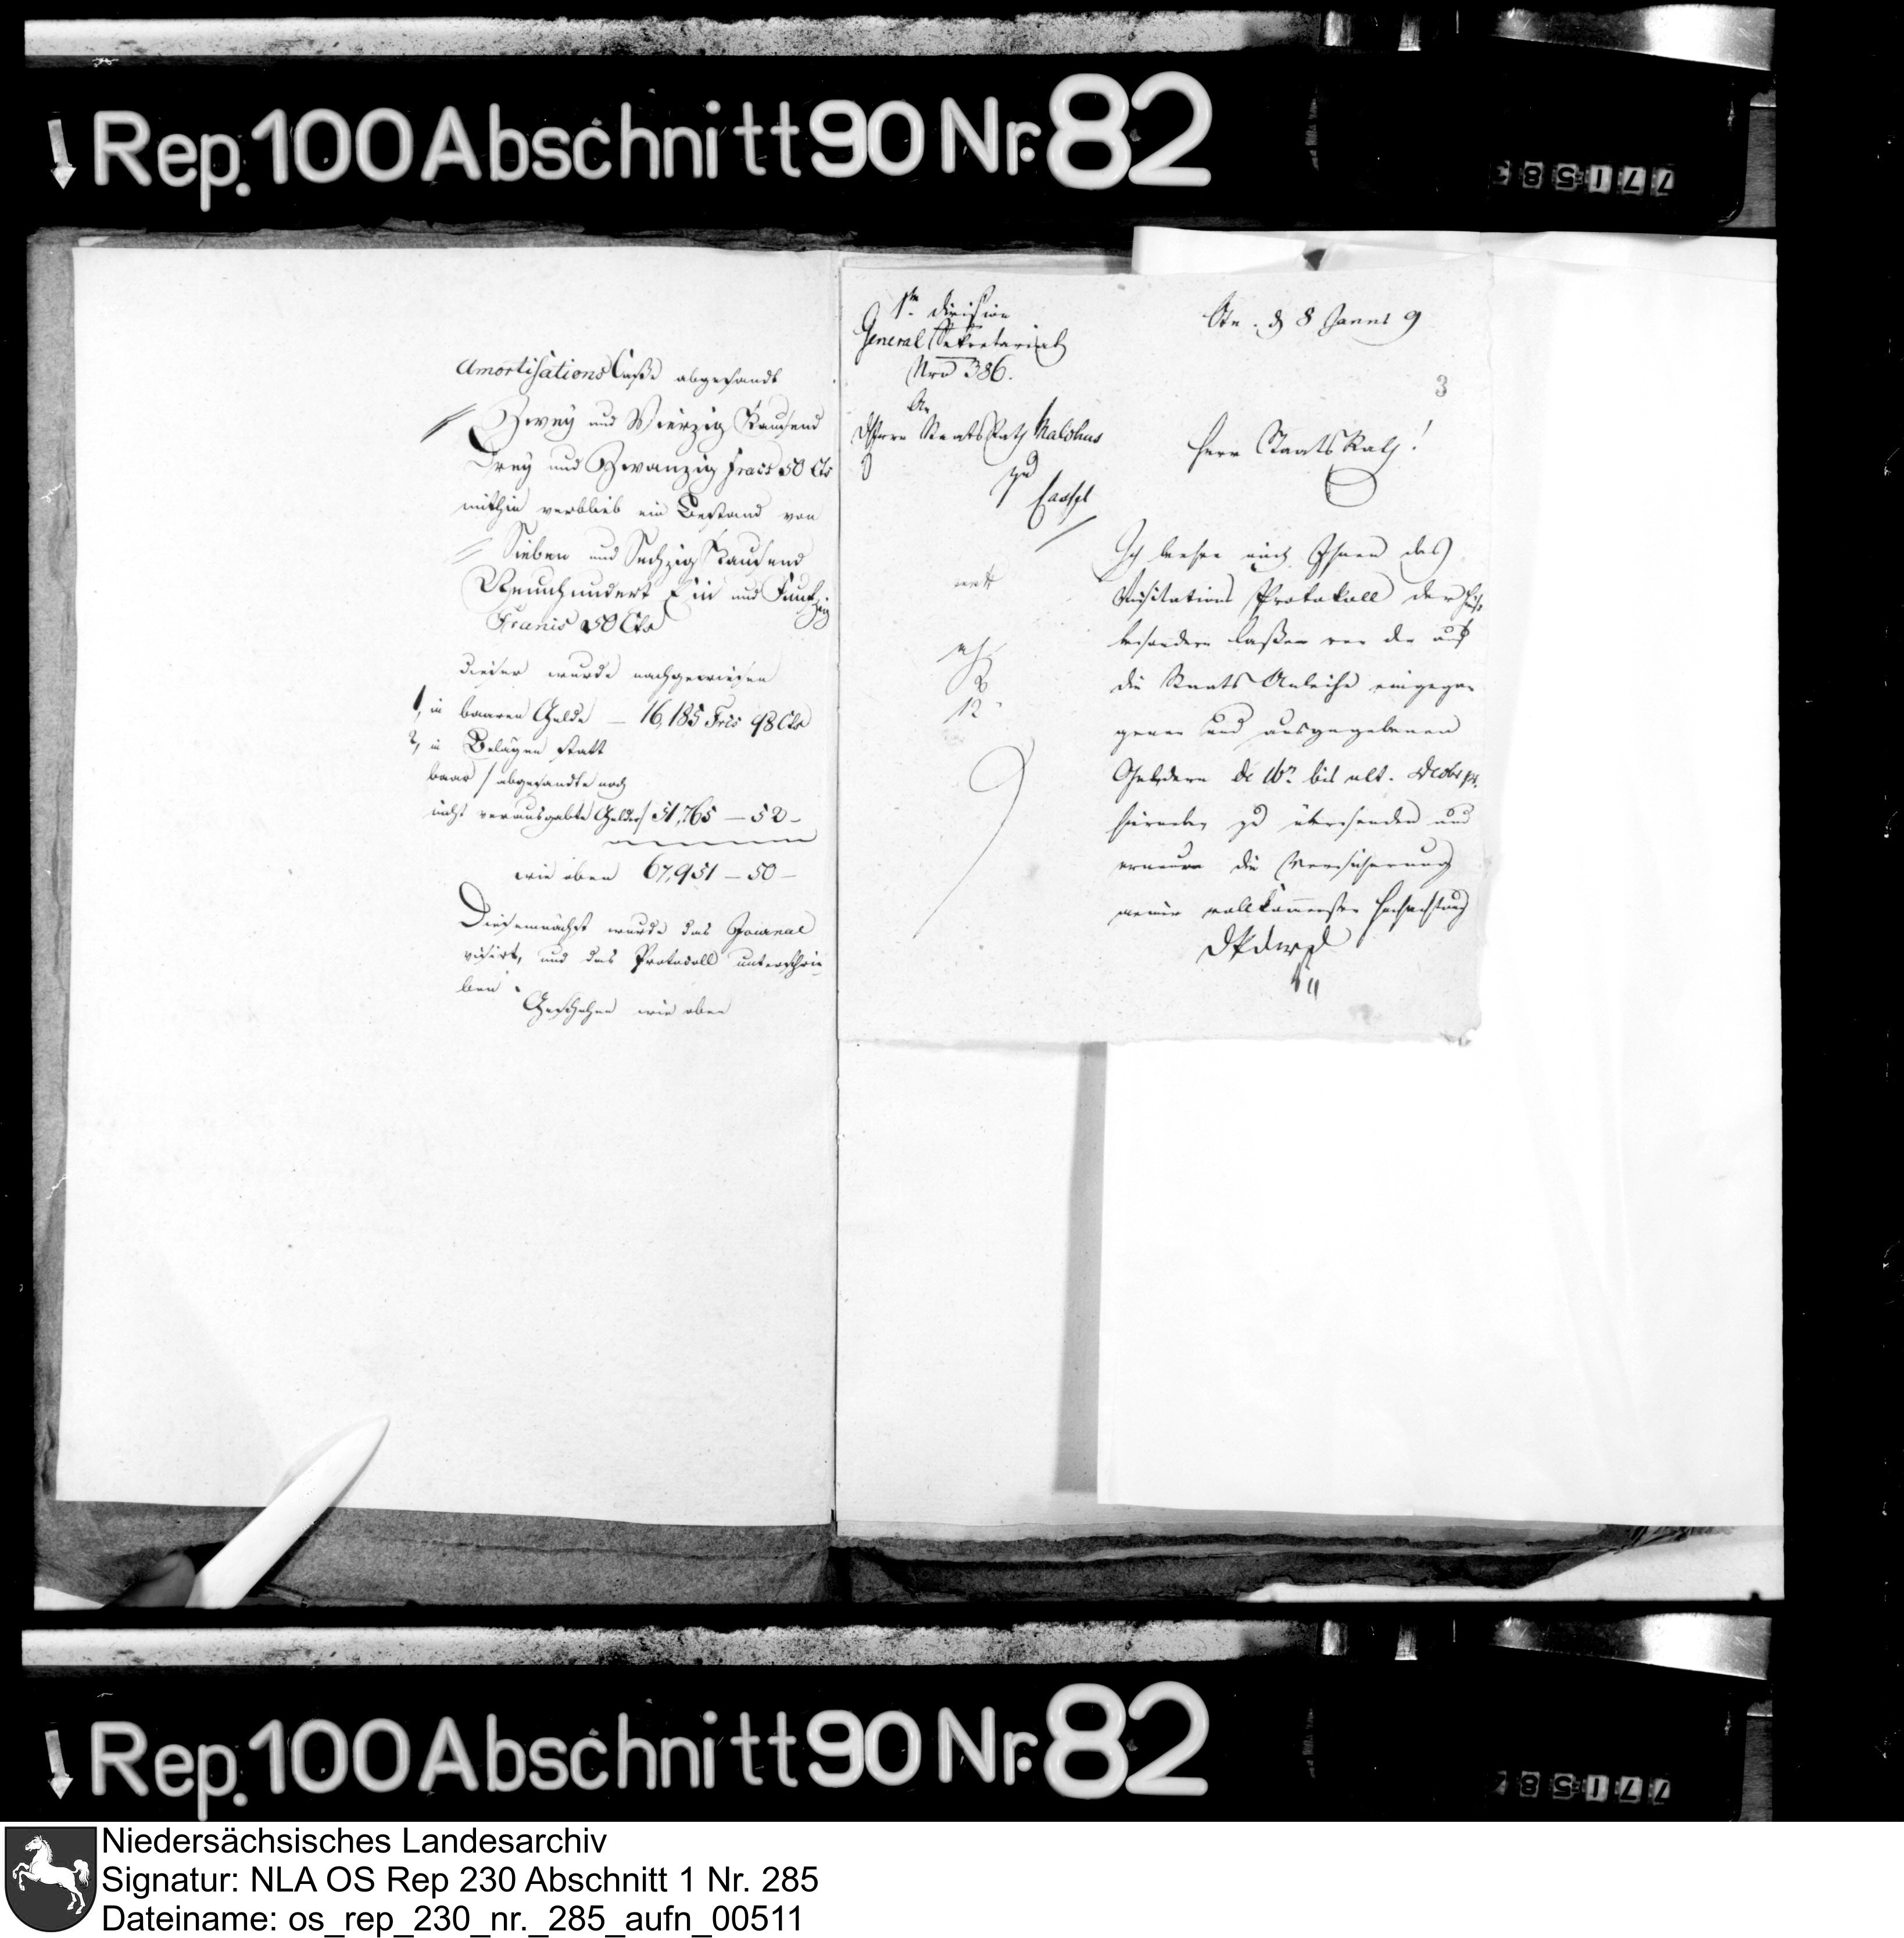 Rep. 100 Abschnitt 90 Nr. 82
Amortisations Casse abgesandt
Zwey und Vierzig Tausend
Drey und Zwanzig Francs 50 Cts
mithin verblieb ein Bestand von
Sieben und Sechzig Tausend
Neunhundert Ein und Funfzig
Francs 50 Cts
Dieser wurde nachgewiesen
1, in baaren Gelde — 16,185 Frcs 98 Cts
2, in Belägen statt
baar / abgesandte noch
nicht verausgabte Gelder / 51,765 — 52 —
wie oben 67,951 — 50 —
Diesemnächst wurde das Journal
visirt, und das Protocoll unterschrie
ben.
Geschehen wie oben
1te Division
General Sekretariat
Nro 386.
An
Herrn Staats Rath Malchus
zu
Cassel
12
8 9
3
Herr Staats Rath!
Ich beehre mich Ihnen das
Visitations Protokoll der
besondern Cassen der auf
die Staats Anleihe eingegan
genen und ausgegebenen
Geldern bis ult.
hierneben zu übersenden und
erneure die Versicherung
meiner vollkommensten Hochachtung
Rep. 100 Abschnitt 90 Nr. 82
Niedersächsisches Landesarchiv
Signatur: NLA OS Rep 230 Abschnitt 1 Nr. 285
Dateiname: os_rep_230_nr._285_aufn_00511